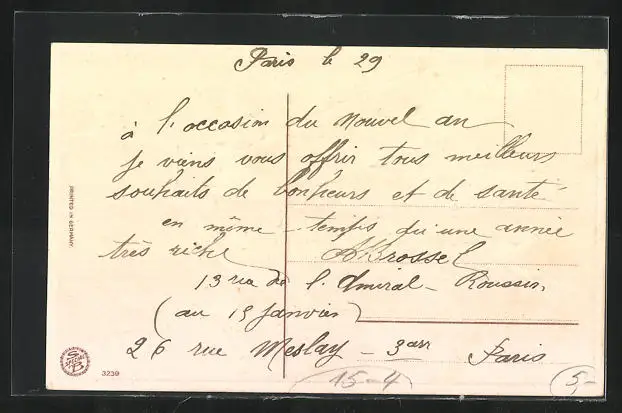 Paris le 29
à l'occasion du Nouvel an
je viens vous offrir tous meilleurs
souhaits de bonheurs et de santé
en même temps qu'une année
très riche ABrossel
13 rue de l'Amiral - Roussin
(au 15 Janvier)
26 rue Meslay - 3arr Paris
15-4
5-
PRINTED IN GERMANY
SPECIAL
3239